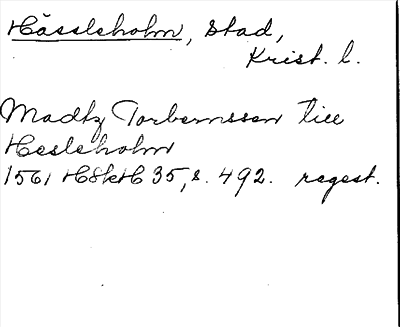 Hässleholm, stad,
Krist. l.
Madtz Torbernssen till
Hesleholm
1561 HSkH 35, s. 492. regest.